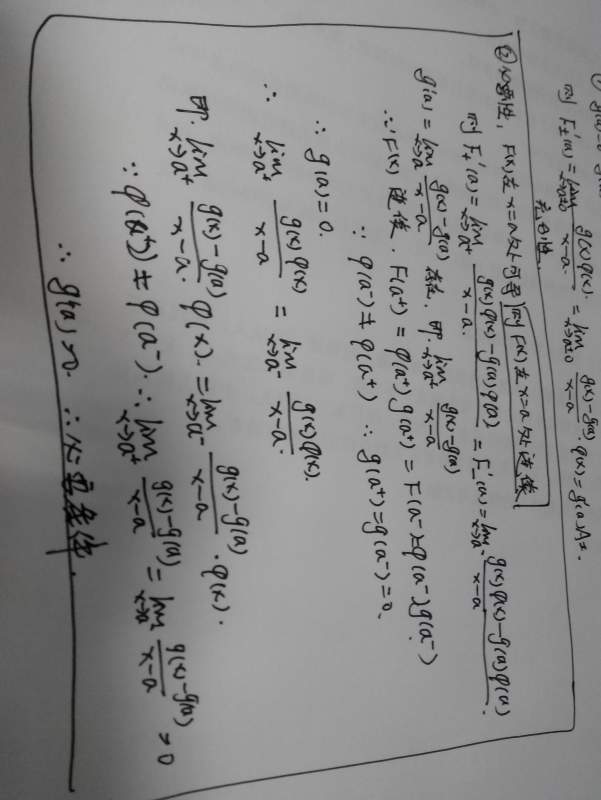 则 F±'(a) = lim x→a±0 g(x)φ(x) / x-a = lim x→a±0 g(x)-g(a) / x-a · φ(x) = g'(a)A±.
充分性.
② 必要性, F(x)在 x=a处可导 则F(x)在 x=a处连续
则 F+'(a) = lim x→a+ g(x)φ(x)-g(a)φ(a) / x-a = F-'(a) = lim x→a- g(x)φ(x)-g(a)φ(a) / x-a.
g'(a) = lim x→a g(x)-g(a) / x-a 存在, 即 lim x→a+ g(x)-g(a) / x-a
∵ F(x) 连续. F(a+) = φ(a+)g(a+) = F(a-) = φ(a-)g(a-)
∵ φ(a-) ≠ φ(a+) ∴ g(a+) = g(a-) = 0.
∴ g(a) = 0.
∴ lim x→a+ g(x)φ(x) / x-a = lim x→a- g(x)φ(x) / x-a.
即. lim x→a+ g(x)-g(a) / x-a · φ(x) = lim x→a- g(x)-g(a) / x-a · φ(x).
∵ φ(a+) ≠ φ(a-) ∴ lim x→a+ g(x)-g(a) / x-a = lim x→a- g(x)-g(a) / x-a = 0
∴ g'(a) = 0. ∴ 必要性.